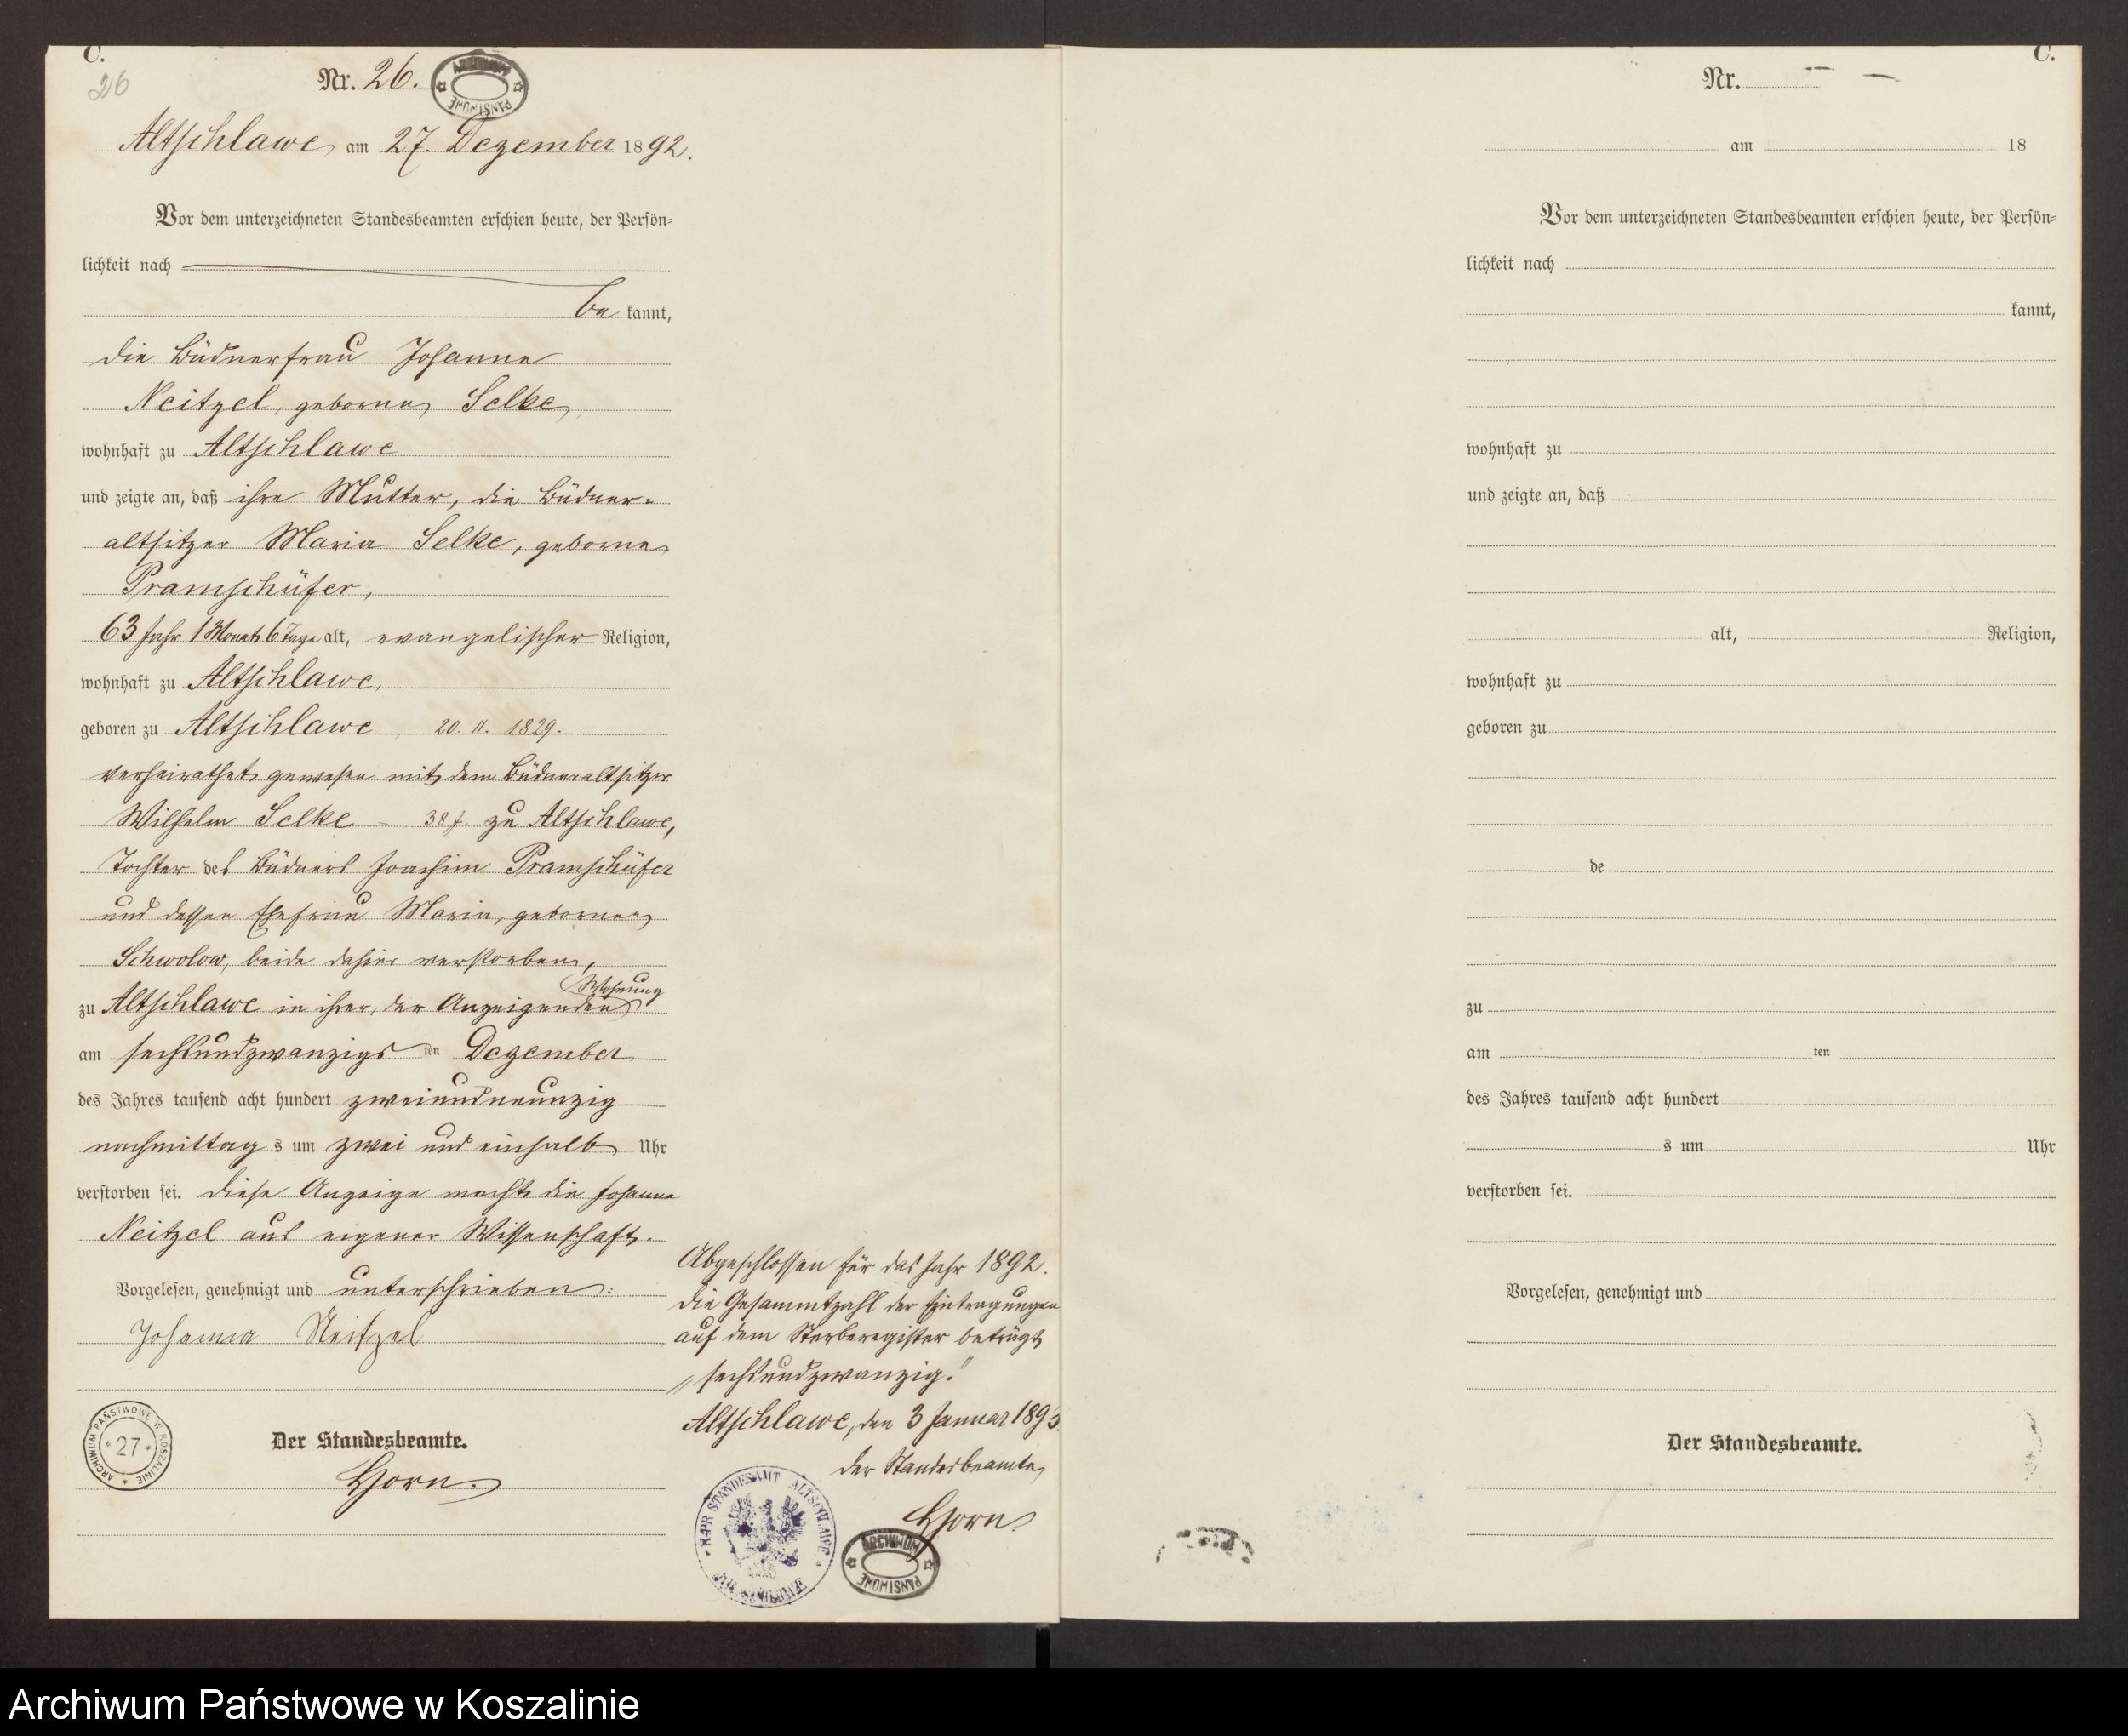 C.
26
Nr. 26.
ARCHIWUM PAŃSTWOWE
Altschlawe am 27. Dezember 1892.
Vor dem unterzeichneten Standesbeamten erschien heute, der Persön-
lichkeit nach
be kannt,
die Büdnerfrau Johanne
Neitzel, geborne Selke
wohnhaft zu Altschlawe
und zeigte an, daß ihre Mutter, die Büdner-
altsitzer Maria Selke, geborne
Pramschüfer,
63 Jahr 1 Monat 6 Tage alt, evangelischer Religion,
wohnhaft zu Altschlawe,
geboren zu Altschlawe, 20. 11. 1829.
verheirathet gewesen mit dem Büdneraltsitzer
Wilhelm Selke – 38 J. zu Altschlawe,
Tochter des Büdners Joachim Pramschüfer
und dessen Ehefrau Maria, gebornen
Schwolow, beide dahier verstorben,
Wohnung
zu Altschlawe in ihrer, der Anzeigenden
am sechsundzwanzigs ten Dezember
des Jahres tausend acht hundert zweiundneunzig
nachmittag s um zwei und einhalb Uhr
verstorben sei. Diese Anzeige macht die Johanne
Neitzel aus eigener Wissenschaft.
Vorgelesen, genehmigt und unterschrieben:
Johanna Neitzel
Der Standesbeamte.
Horn.
ARCHIWUM PAŃSTWOWE W KOSZALINIE
*27*
Abgeschlossen für das Jahr 1892.
Die Gesammtzahl der Eintragungen
auf dem Sterberegister beträgt
„sechsundzwanzig."
Altschlawe, den 3 Januar 1893.
Der Standesbeamte
Horn
K. PR. STANDESAMT ALTSCHLAWE
ARCHIWUM PAŃSTWOWE
C.
Nr. — —
am 18
Vor dem unterzeichneten Standesbeamten erschien heute, der Persön-
lichkeit nach
kannt,
wohnhaft zu
und zeigte an, daß
alt, Religion,
wohnhaft zu
geboren zu
de
zu
am ten
des Jahres tausend acht hundert
s um Uhr
verstorben sei.
Vorgelesen, genehmigt und
Der Standesbeamte.
Archiwum Państwowe w Koszalinie